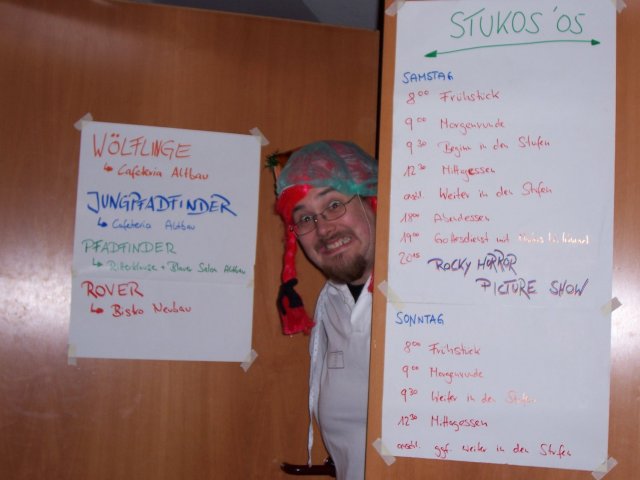 WÖLFLINGE
↳ Cafeteria Altbau
JUNGPFADFINDER
↳ Cafeteria Altbau
PFADFINDER
↳ Ritterklause + Blauer Salon Altbau
ROVER
↳ Bisko Neubau
STUKOS '05
SAMSTAG
8⁰⁰ Frühstück
9⁰⁰ Morgenrunde
9³⁰ Beginn in den Stufen
12³⁰ Mittagessen
anschl. Weiter in den Stufen
18⁰⁰ Abendessen
19⁰⁰ Gottesdienst mit
20⁴⁵ ROCKY HORROR
PICTURE SHOW
SONNTAG
8⁰⁰ Frühstück
9⁰⁰ Morgenrunde
9³⁰ Weiter in den Stufen
12³⁰ Mittagessen
anschl. ggf. weiter in den Stufen